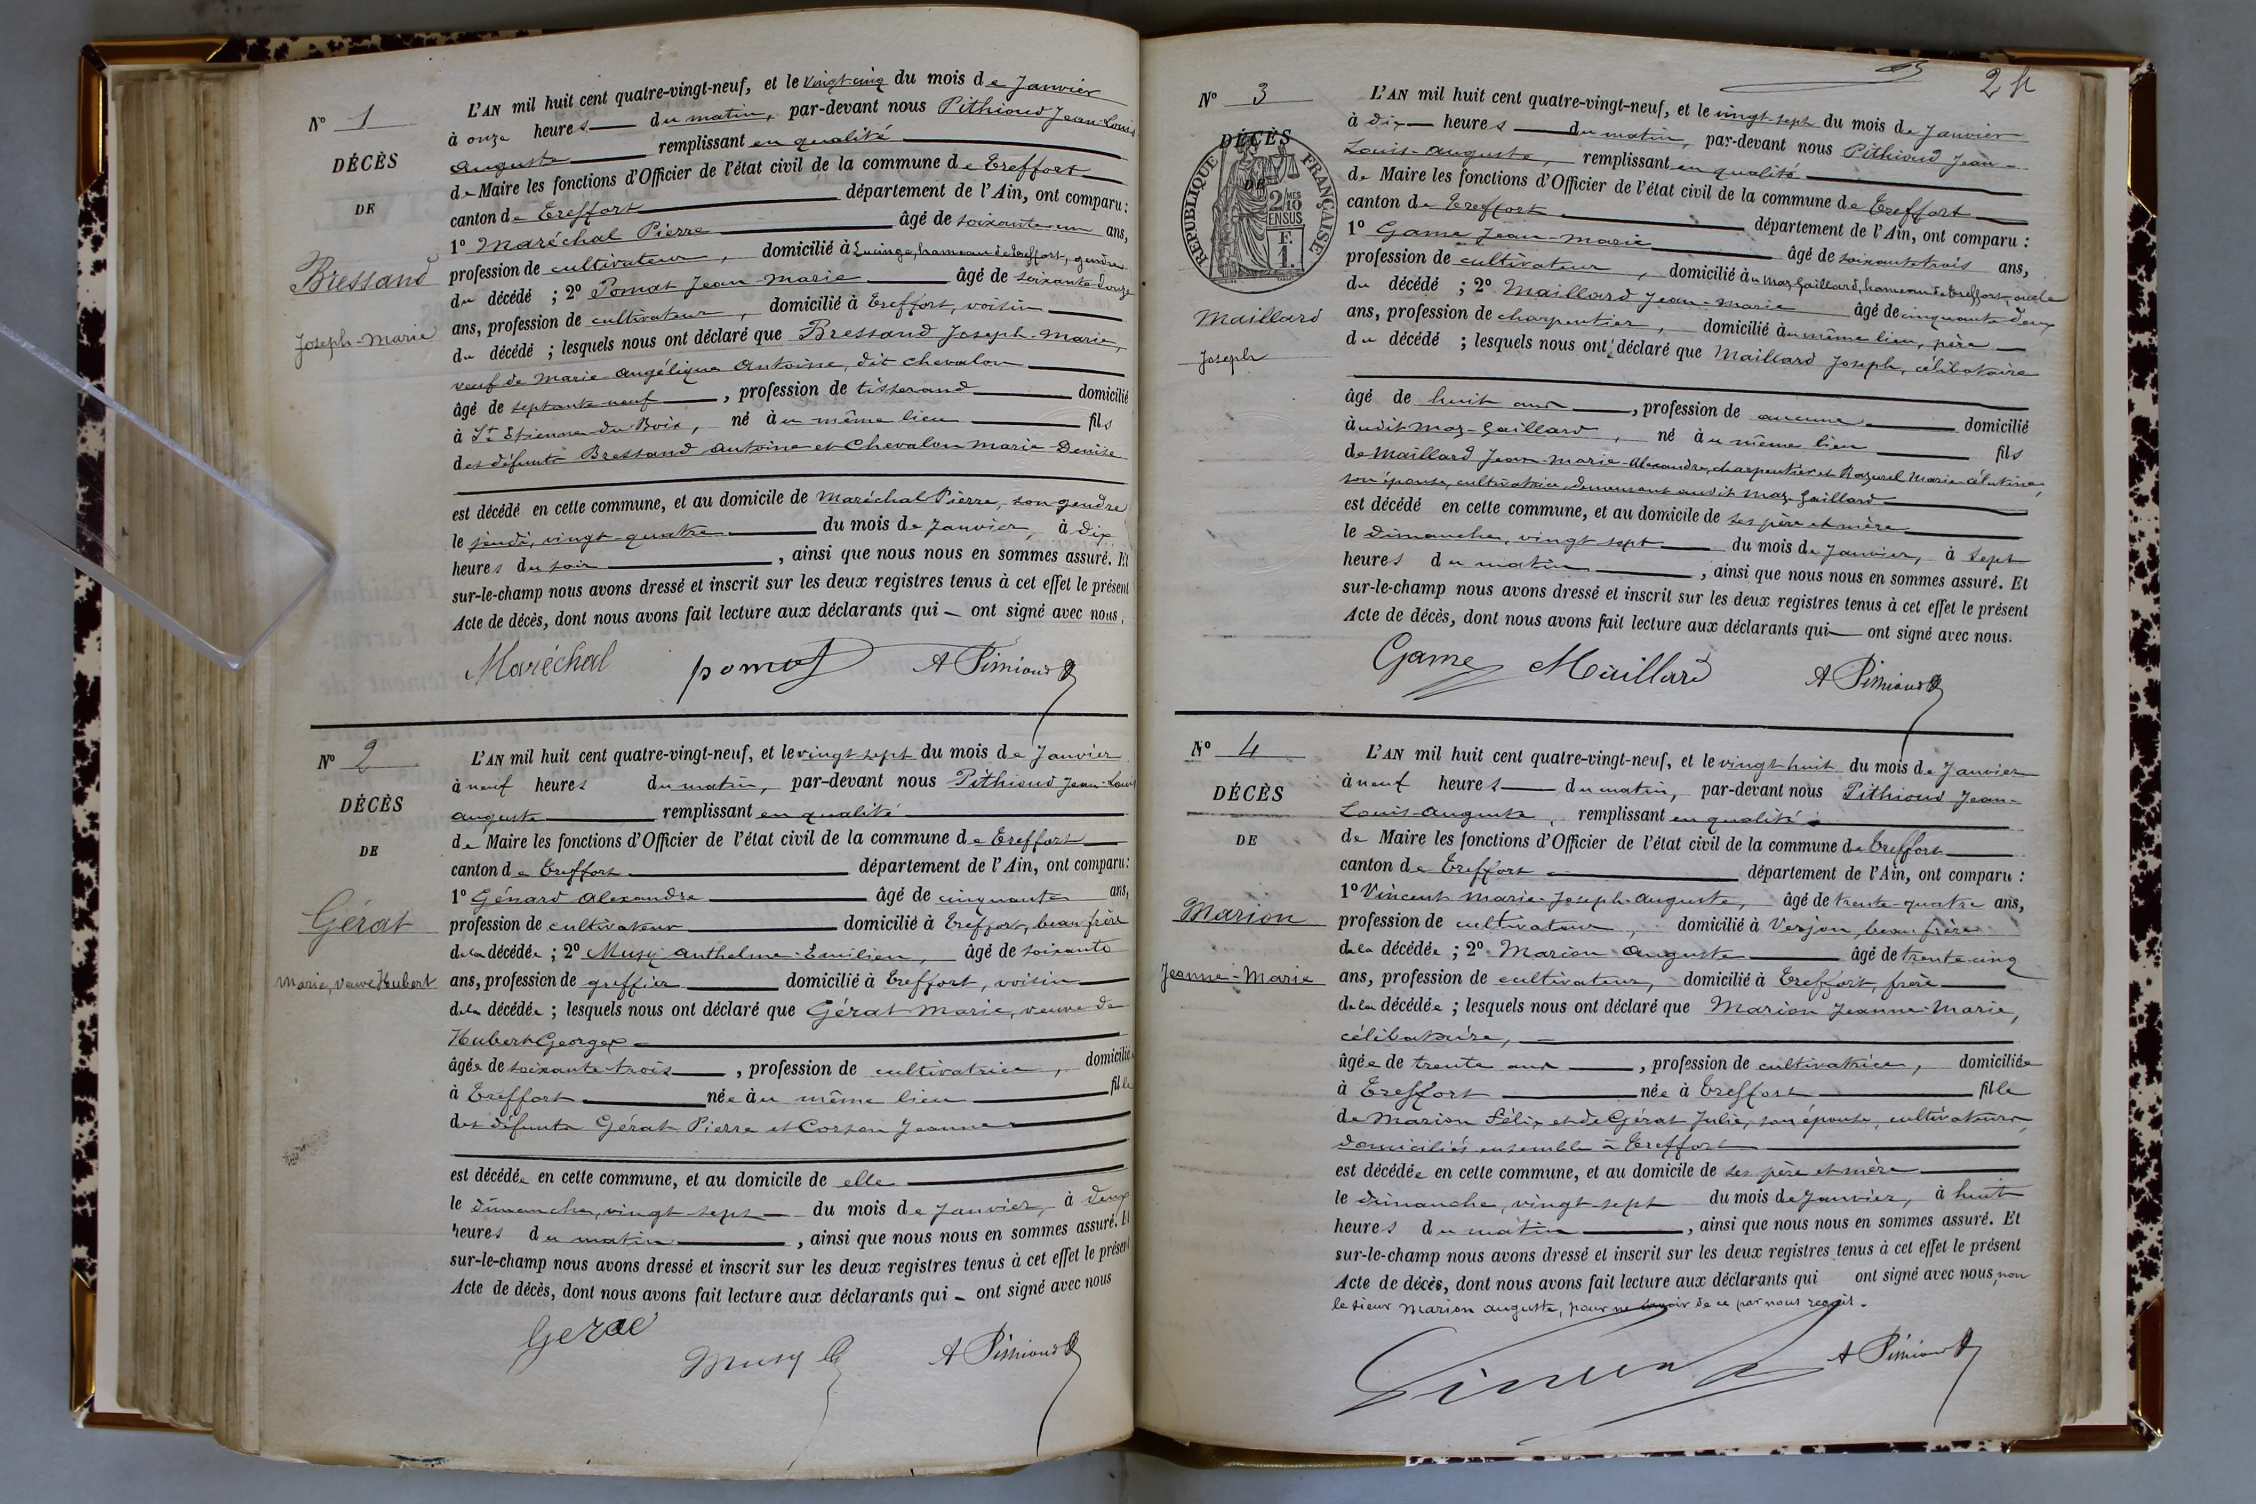 N° 1
DÉCÈS
DE
Bressand
Joseph-Marie
L'AN mil huit cent quatre-vingt-neuf, et le vingt-cinq du mois de Janvier
à onze heures du matin, par-devant nous Pithioud Jean-Louis
Auguste remplissant en qualité
de Maire les fonctions d'Officier de l'état civil de la commune de Treffort
canton de Treffort département de l'Ain, ont comparu :
1° Maréchal Pierre âgé de soixante un ans,
profession de cultivateur, domicilié à Lucinge, hameau de Treffort, gendre
du décédé ; 2° Pomat Jean Marie âgé de soixante-douze
ans, profession de cultivateur, domicilié à Treffort, voisin
du décédé ; lesquels nous ont déclaré que Bressand Joseph-Marie,
veuf de Marie Angélique Antoine, dit Chevalon
âgé de septante-neuf, profession de tisserand domicilié
à St Etienne du Bois, né au même lieu fils
des défunts Bressand Antoine et Chevalon Marie-Denise
est décédé en cette commune, et au domicile de Maréchal Pierre, son gendre
le jeudi, vingt-quatre du mois de Janvier, à dix
heures du soir, ainsi que nous nous en sommes assuré. Et
sur-le-champ nous avons dressé et inscrit sur les deux registres tenus à cet effet le présent
Acte de décès, dont nous avons fait lecture aux déclarants qui ont signé avec nous.
Maréchal pomat A Pithioud
N° 2
DÉCÈS
DE
Gérat
Marie, veuve Hubert
L'AN mil huit cent quatre-vingt-neuf, et le vingt-sept du mois de Janvier
à neuf heures du matin, par-devant nous Pithioud Jean-Louis
Auguste remplissant en qualité
de Maire les fonctions d'Officier de l'état civil de la commune de Treffort
canton de Treffort département de l'Ain, ont comparu :
1° Génard Alexandre âgé de cinquante ans,
profession de cultivateur domicilié à Treffort, beau frère
de la décédée ; 2° Musy Anthelme-Emilien, âgé de soixante
ans, profession de greffier domicilié à Treffort, voisin
de la décédée ; lesquels nous ont déclaré que Gérat Marie, veuve de
Hubert Georges
âgée de soixante-trois, profession de cultivatrice, domiciliée
à Treffort née au même lieu fille
des défunts Gérat Pierre et Corsan Jeanne
est décédée en cette commune, et au domicile de elle
le dimanche, vingt-sept du mois de Janvier, à deux
heures du matin, ainsi que nous nous en sommes assuré. Et
sur-le-champ nous avons dressé et inscrit sur les deux registres tenus à cet effet le présent
Acte de décès, dont nous avons fait lecture aux déclarants qui ont signé avec nous
Musy A Pithioud
2
N° 3
DÉCÈS
DE
RÉPUBLIQUE FRANÇAISE
2/10
EN SUS
F.
1.
Maillard
Joseph
L'AN mil huit cent quatre-vingt-neuf, et le vingt-sept du mois de Janvier
à dix heures du matin, par-devant nous Pithioud Jean-
Louis-Auguste, remplissant en qualité
de Maire les fonctions d'Officier de l'état civil de la commune de Treffort
canton de Treffort département de l'Ain, ont comparu :
1° Game Jean-Marie âgé de soixante trois ans,
profession de cultivateur, domicilié au Maz-Gaillard, hameau de Treffort, oncle
du décédé ; 2° Maillard Jean-Marie âgé de cinquante deux
ans, profession de charpentier, domicilié au même lieu, père
du décédé ; lesquels nous ont déclaré que Maillard Joseph, célibataire
âgé de huit ans, profession de aucune domicilié
audit Maz-Gaillard, né au même lieu fils
de Maillard Jean-Marie-Alexandre, charpentier et Marie Célestine,
son épouse, cultivatrice demeurant audit Maz-Gaillard
est décédé en cette commune, et au domicile de ses père et mère
le dimanche, vingt sept du mois de Janvier, à sept
heures du matin, ainsi que nous nous en sommes assuré. Et
sur-le-champ nous avons dressé et inscrit sur les deux registres tenus à cet effet le présent
Acte de décès, dont nous avons fait lecture aux déclarants qui ont signé avec nous.
Game Maillard A Pithioud
N° 4
DÉCÈS
DE
Marion
Jeanne-Marie
L'AN mil huit cent quatre-vingt-neuf, et le vingt-huit du mois de Janvier
à neuf heures du matin, par-devant nous Pithioud Jean-
Louis-Auguste, remplissant en qualité
de Maire les fonctions d'Officier de l'état civil de la commune de Treffort
canton de Treffort département de l'Ain, ont comparu :
1° Vincent Marie-Joseph-Auguste, âgé de trente-quatre ans,
profession de cultivateur, domicilié à Verjon, beau frère
de la décédée ; 2° Marion Auguste âgé de trente-cinq
ans, profession de cultivateur, domicilié à Treffort, frère
de la décédée ; lesquels nous ont déclaré que Marion Jeanne-Marie,
célibataire,
âgée de trente ans, profession de cultivatrice, domiciliée
à Treffort née à Treffort fille
de Marion Félix et de Gérat Julie, son épouse, cultivateurs,
domiciliés ensemble à Treffort
est décédée en cette commune, et au domicile de ses père et mère
le dimanche, vingt-sept du mois de Janvier, à huit
heures du matin, ainsi que nous nous en sommes assuré. Et
sur-le-champ nous avons dressé et inscrit sur les deux registres tenus à cet effet le présent
Acte de décès, dont nous avons fait lecture aux déclarants qui ont signé avec nous, non
le sieur Marion Auguste, pour ne savoir de ce par nous requis.
Vincent A Pithioud